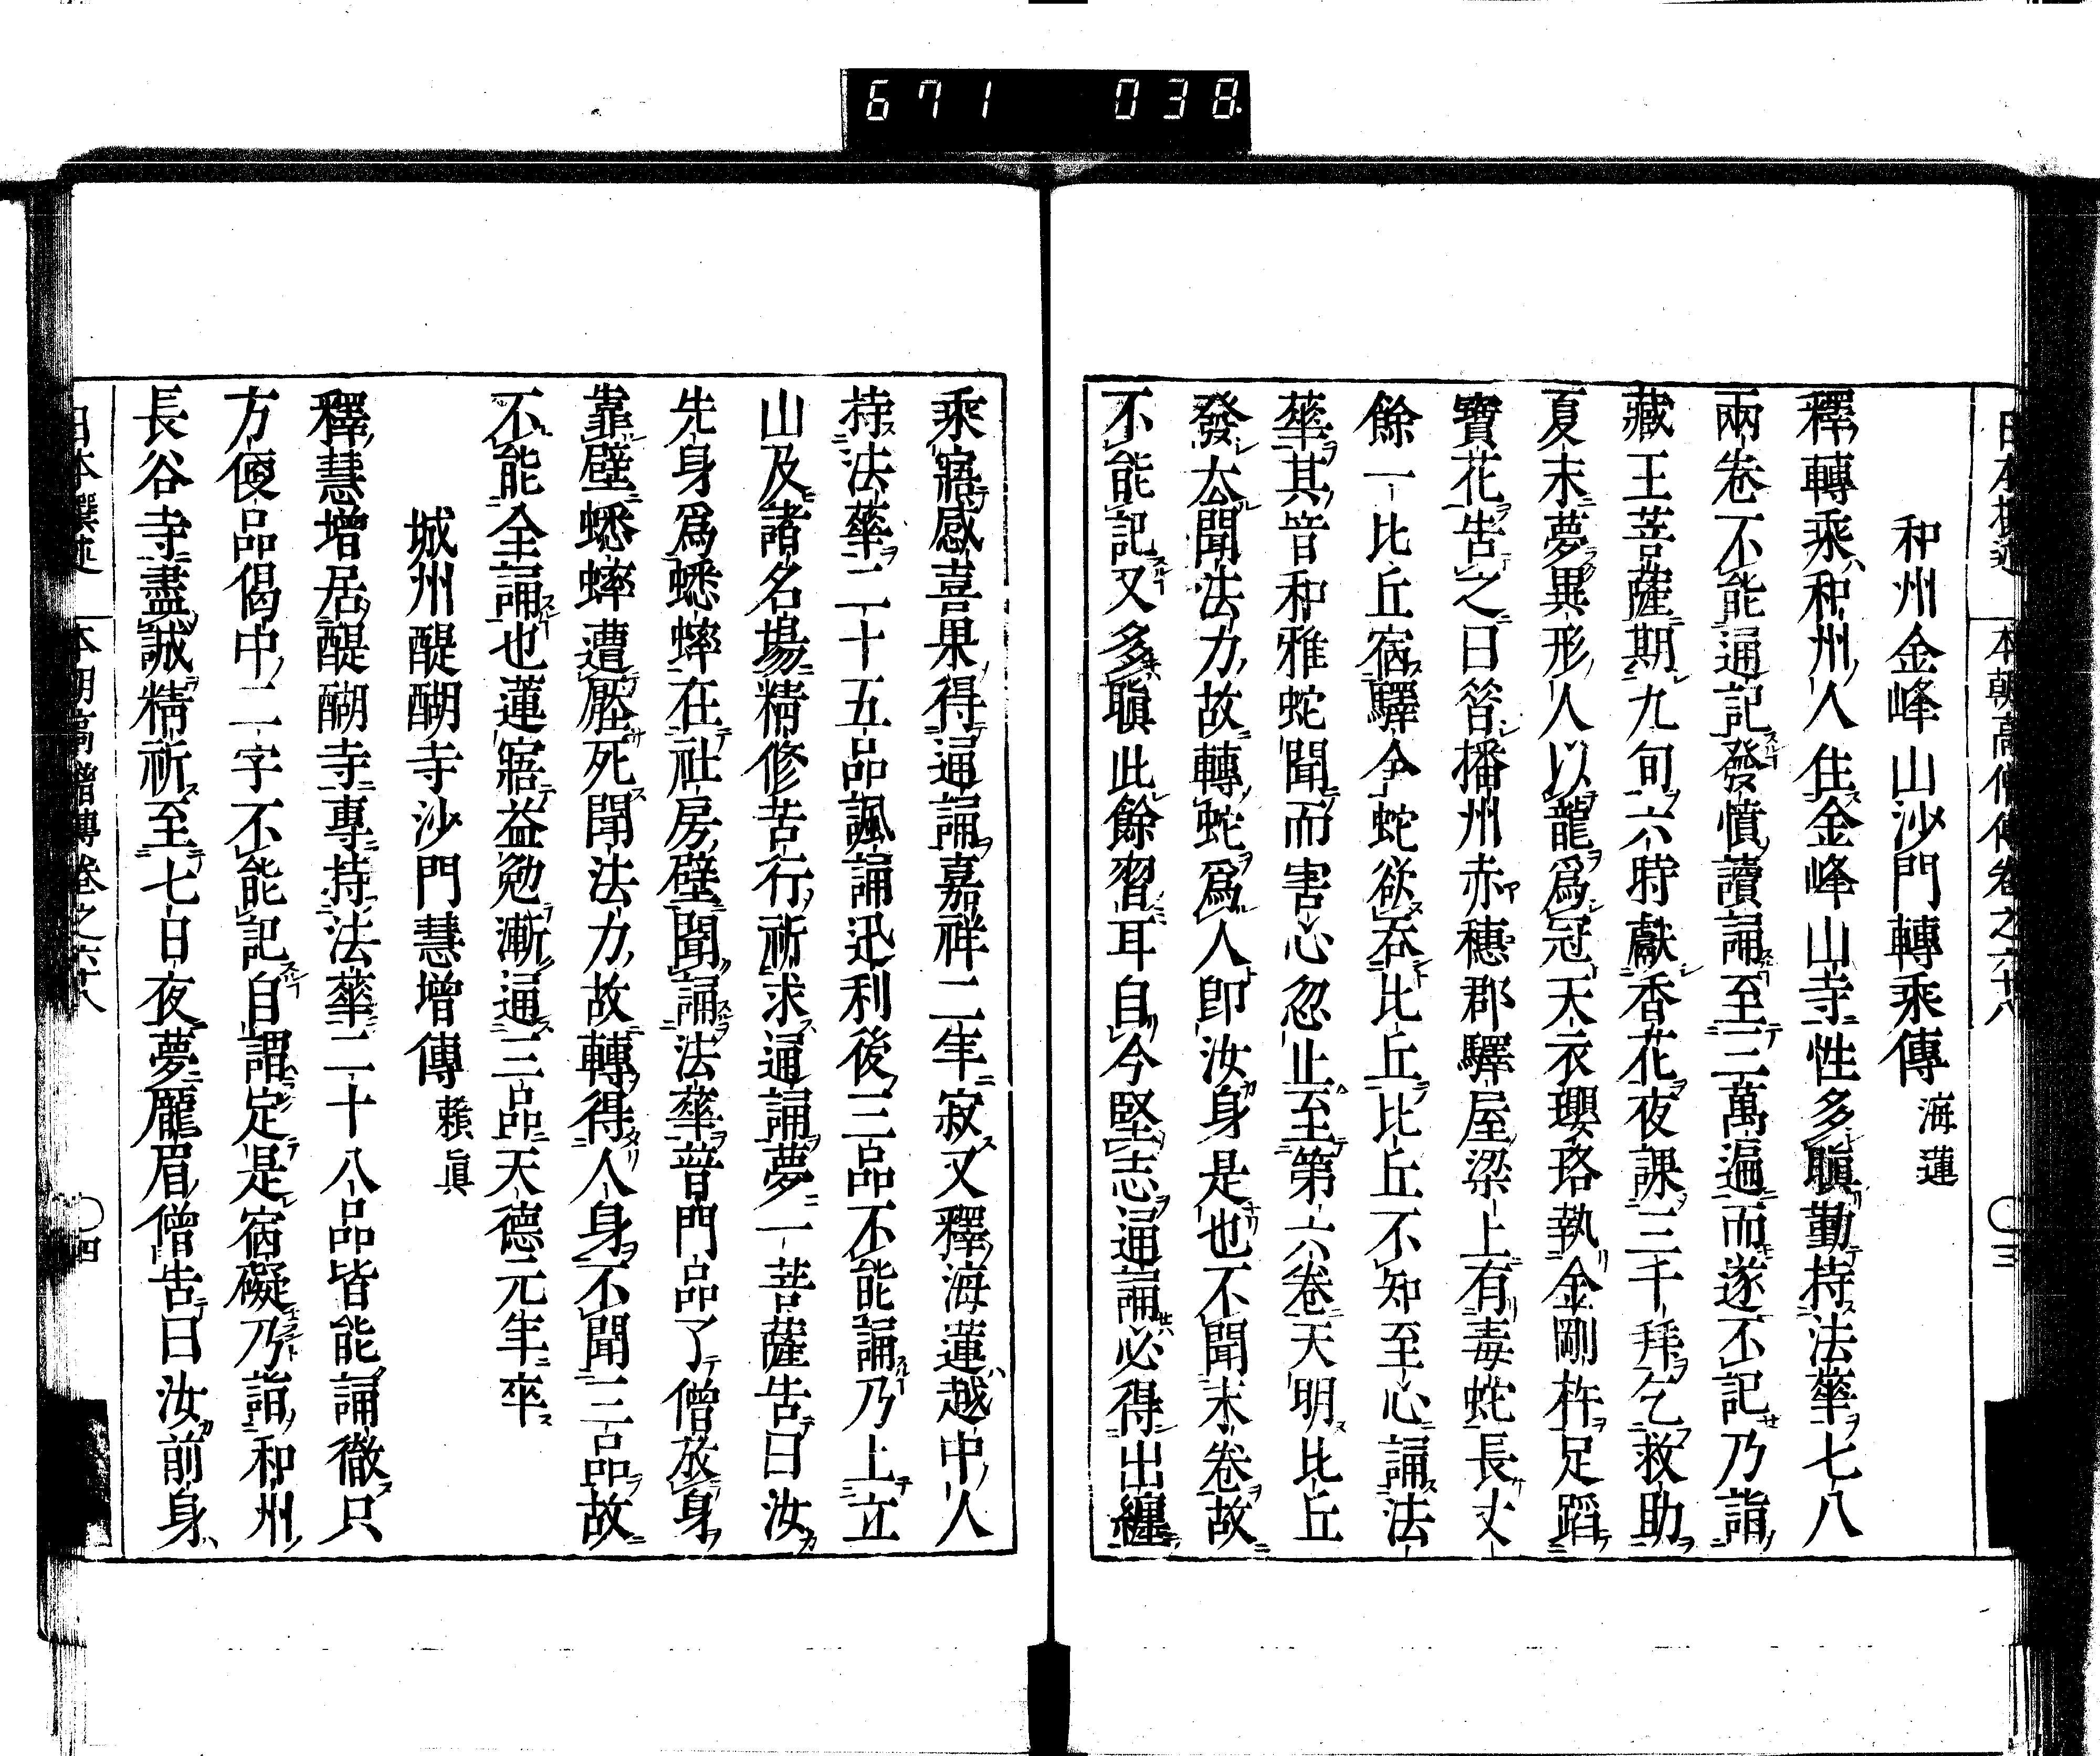 671 038
和州金峰山沙門轉乘傳 海蓮
釋轉乘和州人住金峰山寺性多瞋勤持法華七八
兩卷不能通記發憤讀誦至三萬遍而遂不記乃詣
藏王菩薩期九旬六時獻香花夜課三千拜乞救助
夏末夢異形人以龍爲冠天衣瓔珞執金剛杵足蹈
寶花告之曰昔播州赤穗郡驛屋梁上有毒蛇長丈
餘一比丘宿驛今蛇欲吞比丘比丘不知至心誦法
華其音和雅蛇聞而害心忽止至第六卷天明比丘
發去聞法力故轉蛇爲人即汝身是也不聞末卷故
不能記又多瞋此餘習耳自今堅志通誦必得出纏
乘寤感喜果得通誦嘉祥二年寂又釋海蓮越中人
持法華二十五品諷誦迅利後三品不能誦乃上立
山及諸名場精修苦行祈求通誦夢一菩薩告曰汝
先身爲蟋蟀在社房壁聞誦法華普門品了僧放身
靠壁蟋蟀遭壓死聞法力故轉得人身不聞三品故
不能全誦也蓮寤益勉漸通三品天德元年卒
城州醍醐寺沙門慧增傳 賴眞
釋慧增居醍醐寺專持法華二十八品皆能誦徹只
方便品偈中二字不能記自謂定是宿礙乃詣和州
長谷寺盡誠精祈至七日夜夢龐眉僧告曰汝前身
日本撰述 本朝高僧傳卷之六十八 〇四